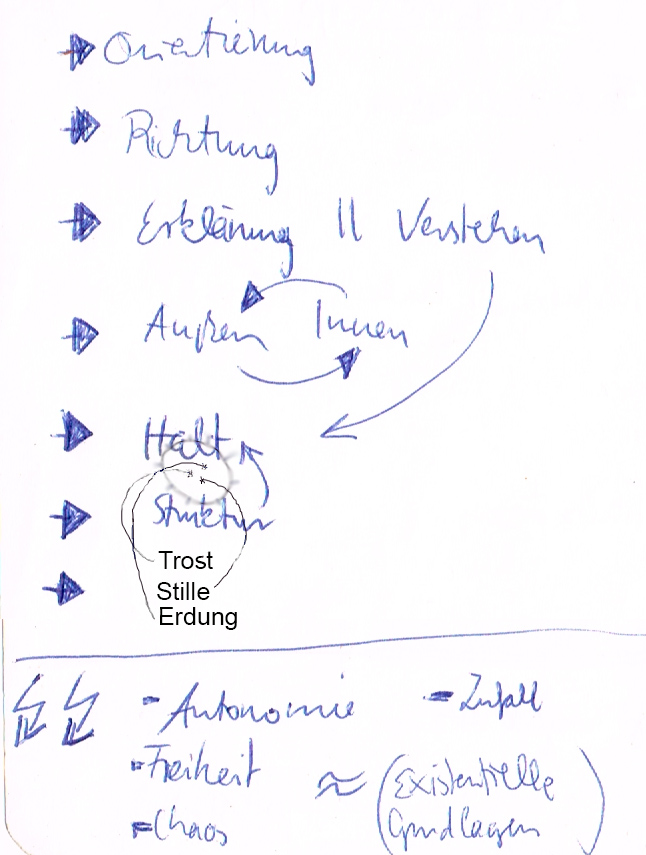 Orientierung
Richtung
Erklärung || Verstehen
Außen Innen
Halt
Struktur
Trost
Stille
Erdung
- Autonomie - Zufall
- Freiheit ≈ (Existentielle
- Chaos Grundlagen)